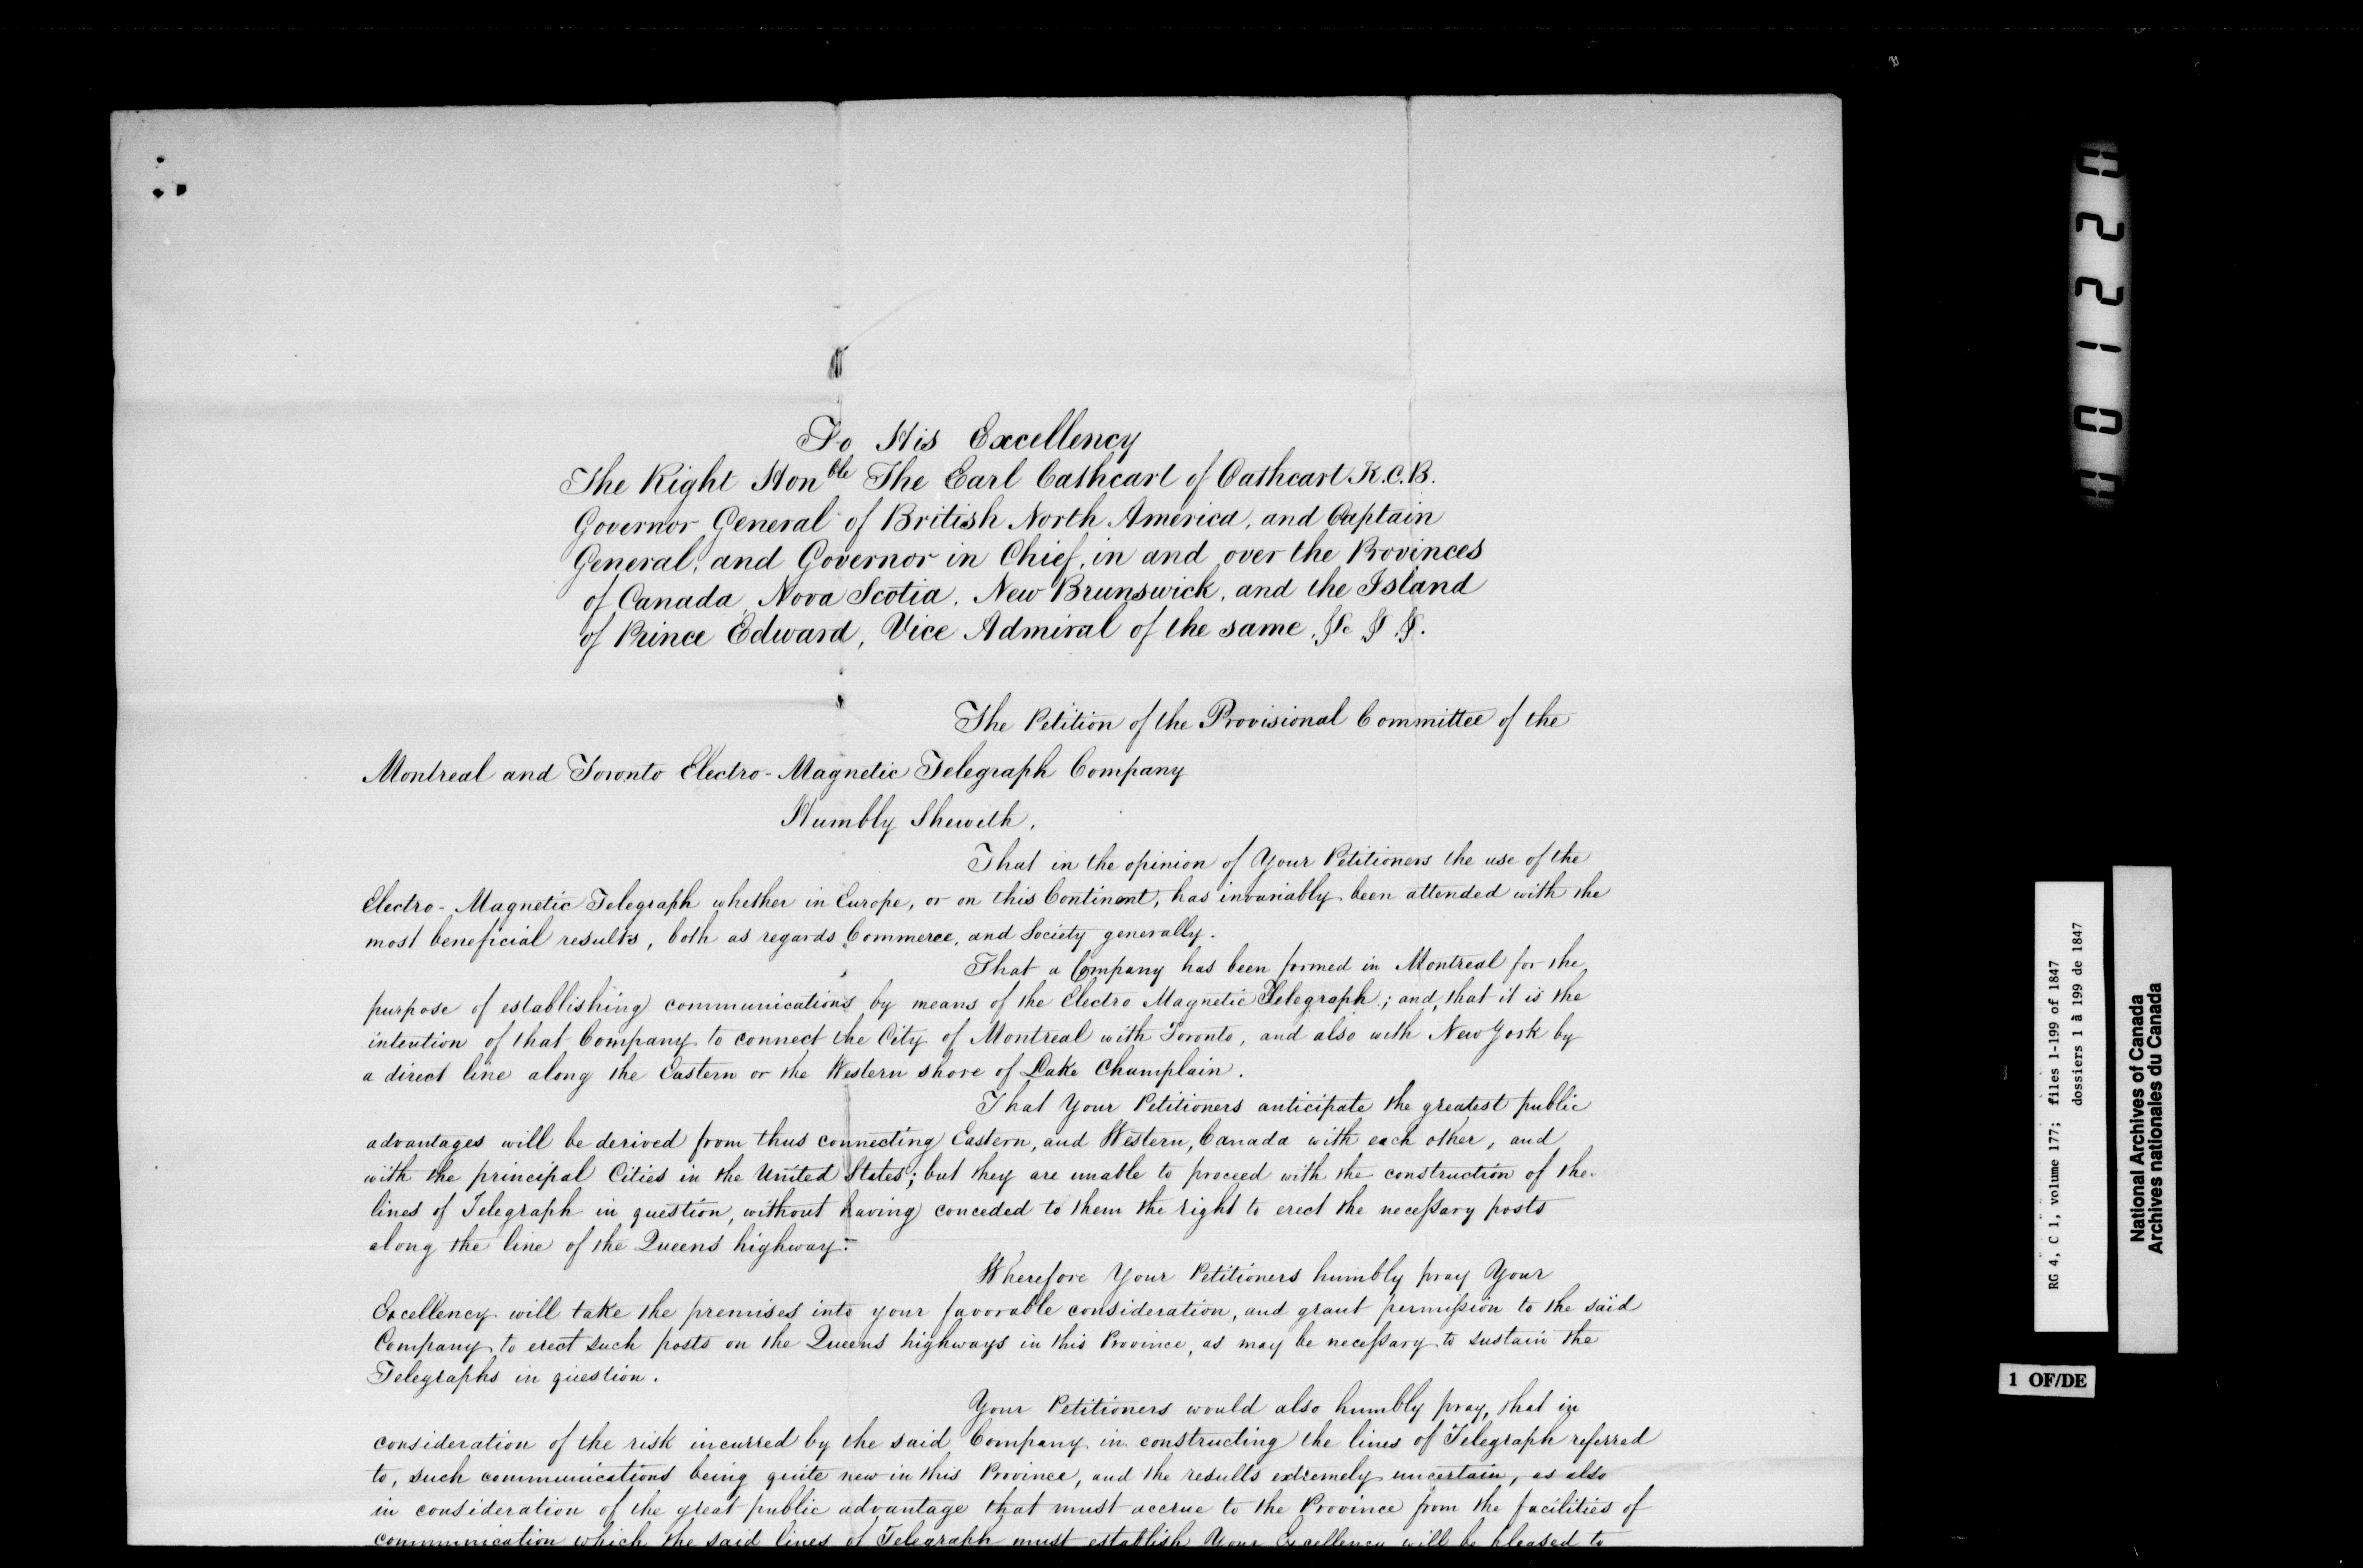 To His Excellency
The Right Honble The Earl Cathcart of Cathcart K.C.B.
Governor General of British North America, and Captain
General, and Governor in Chief, in and over the Provinces
of Canada, Nova Scotia, New Brunswick, and the Island
of Prince Edward, Vice Admiral of the same. &c & &.
The Petition of the Provisional Committee of the
Montreal and Toronto Electro-Magnetic Telegraph Company
Humbly Sheweth,
That in the opinion of Your Petitioners the use of the
Electro-Magnetic Telegraph whether in Europe, or on this Continent, has invariably been attended with the
most beneficial results, both as regards Commerce, and Society generally.
That a Company has been formed in Montreal for the
purpose of establishing communications by means of the Electro Magnetic Telegraph; and that it is the
intention of that Company to connect the City of Montreal with Toronto, and also with New York by
a direct line along the Eastern or the Western shore of Lake Champlain.
That Your Petitioners anticipate the greatest public
advantages will be derived from thus connecting Eastern, and Western, Canada with each other, and
with the principal Cities in the United States; but they are unable to proceed with the construction of the
lines of Telegraph in question, without having conceded to them the right to erect the necessary posts
along the line of the Queens highway.
Wherefore Your Petitioners humbly pray Your
Excellency will take the premises into your favorable consideration, and grant permission to the said
Company to erect such posts on the Queens highways in this Province, as may be necessary to sustain the
Telegraphs in question.
Your Petitioners would also humbly pray, that in
consideration of the risk incurred by the said Company in constructing the lines of Telegraph referred
to, such communications being quite new in this Province, and the results extremely uncertain, as also
in consideration of the great public advantage that must accrue to the Province from the facilities of
communication which the said lines of Telegraph must establish Your Excellency will be pleased to
H01220
RG 4, C 1, volume 177; files 1-199 of 1847
dossiers 1 à 199 de 1847
National Archives of Canada
Archives nationales du Canada
1 OF/DE